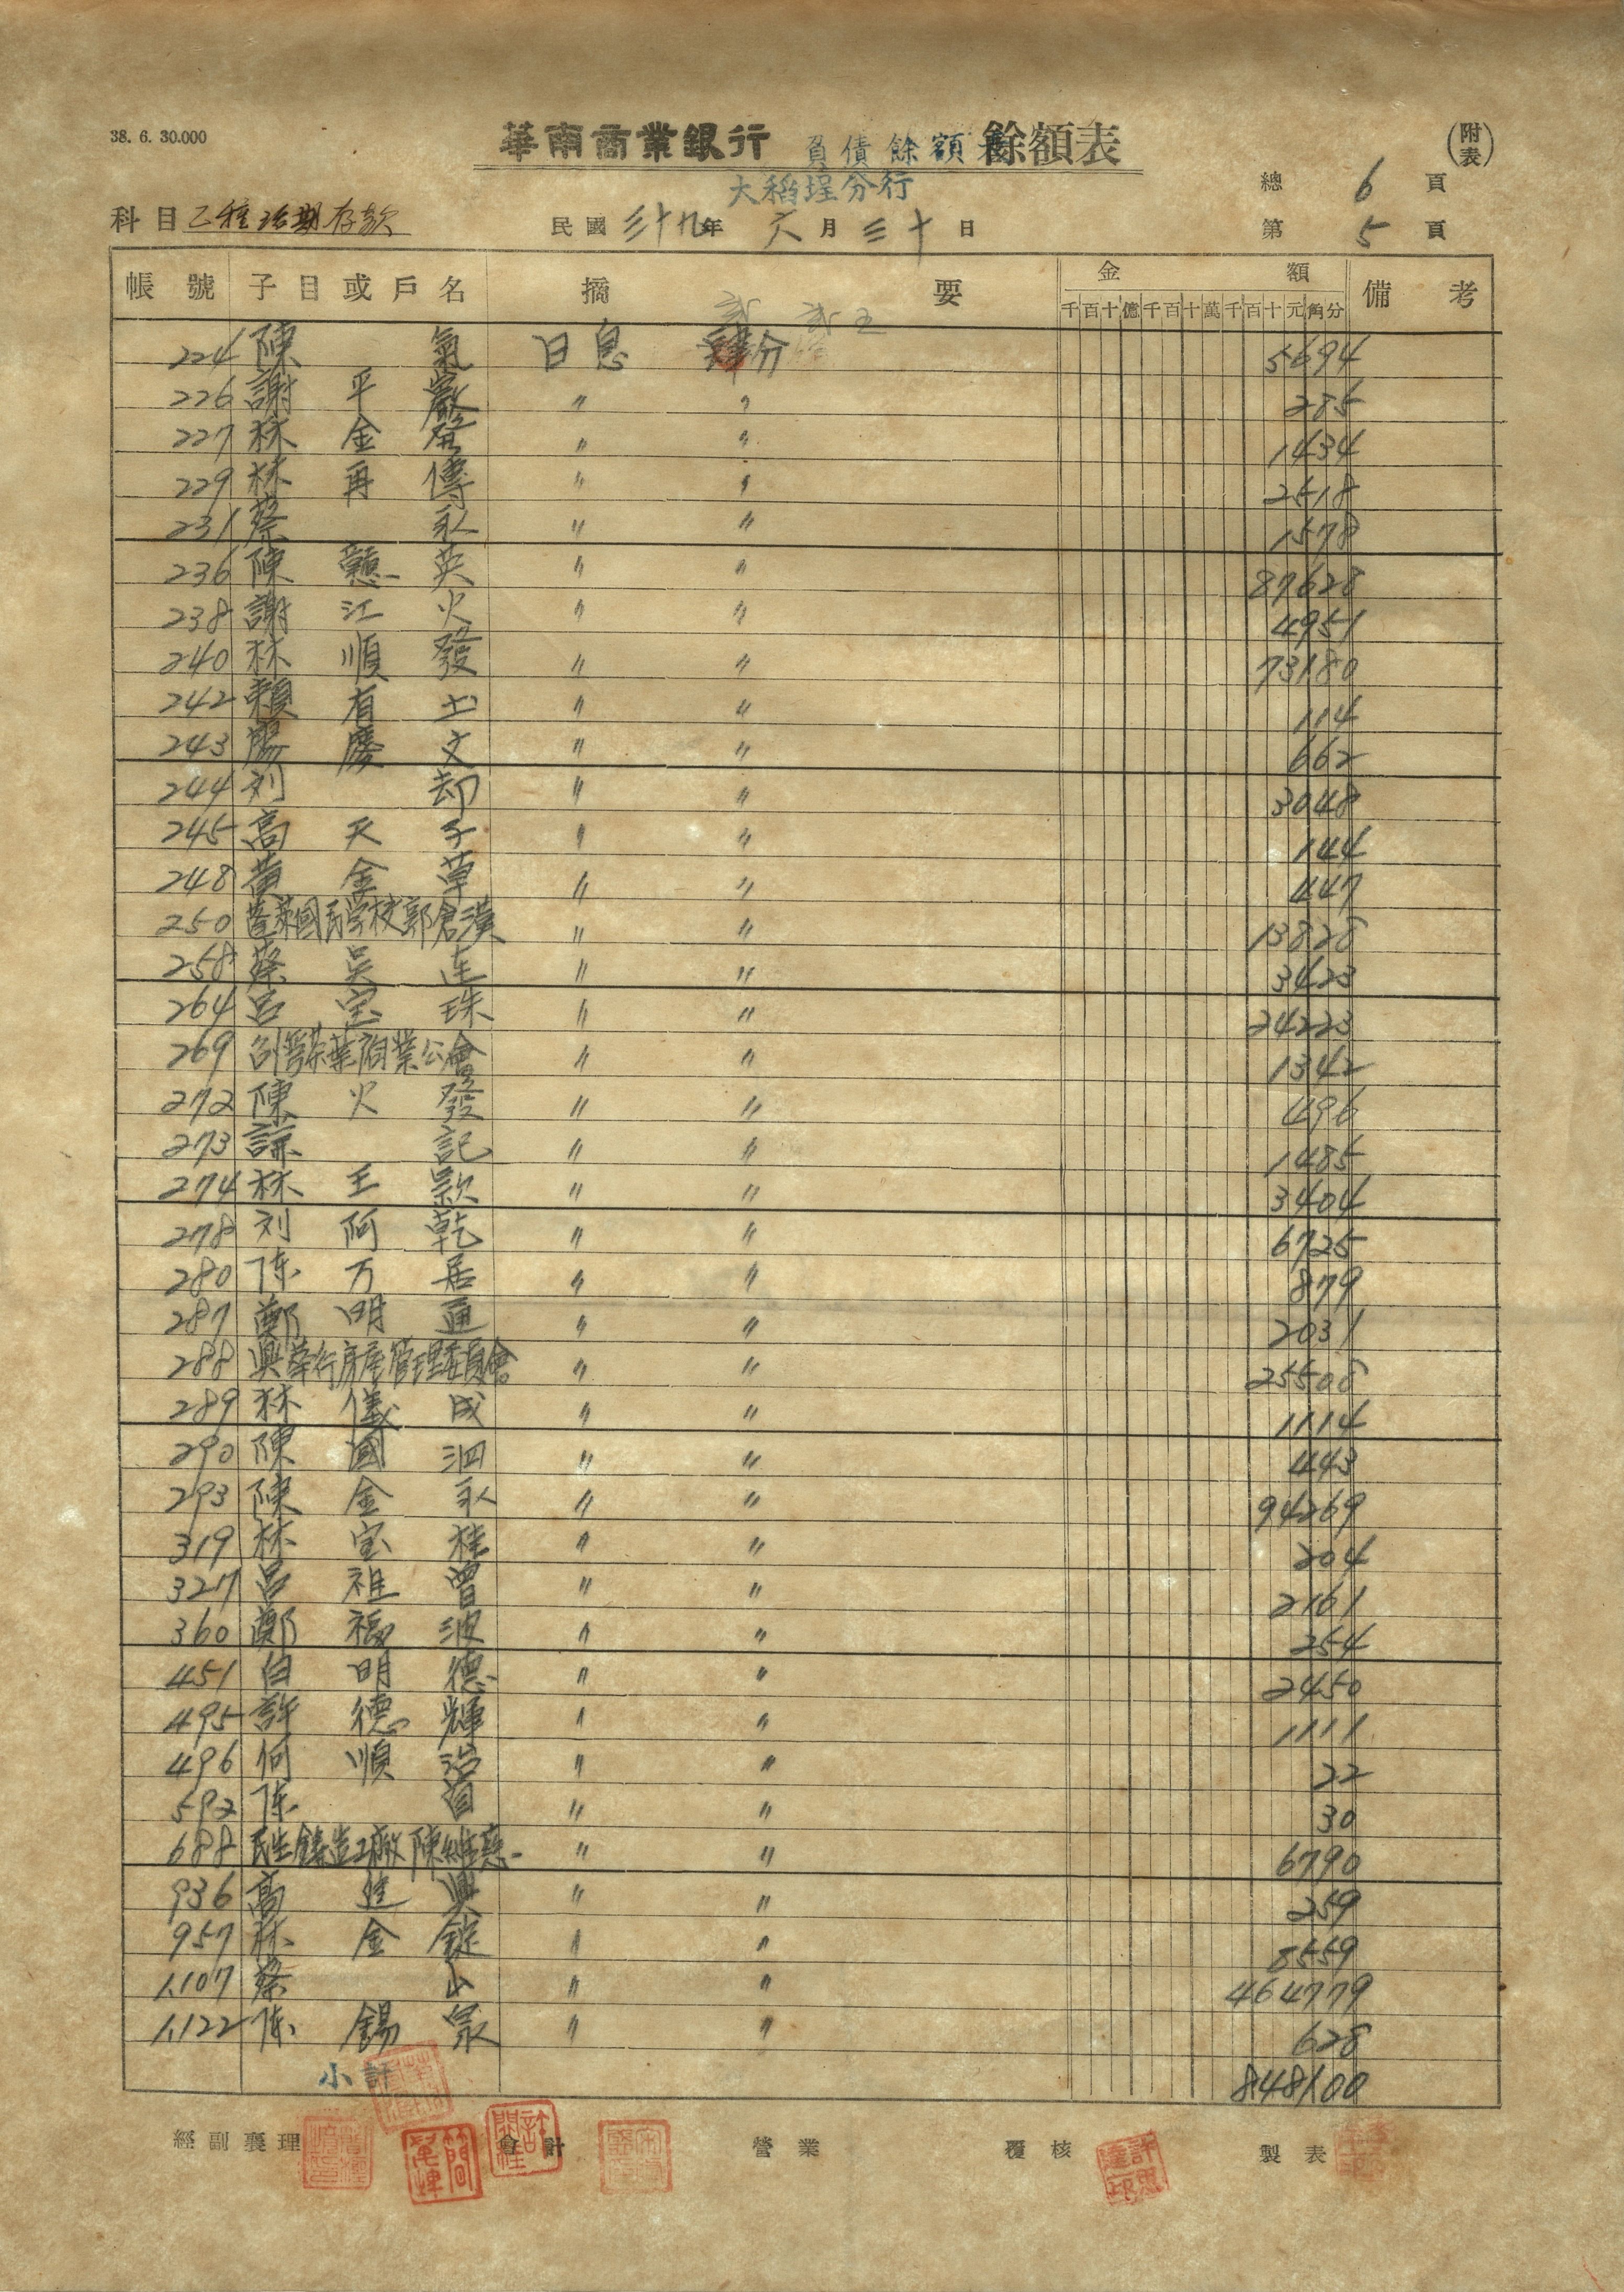 38. 6. 30.000
華南商業銀行 負債餘額表 餘額表 (附表)
大稻埕分行
總 6 頁
科目 乙種活期存款 民國 三十九年 六月 三十日 第 5 頁
帳號 子目或戶名 摘要 金額 備考
千百十億千百十萬千百十元角分
224 陳 氣 日息 肆分 5694
226 謝平嚴 〃 〃 285
227 林金發 〃 〃 1434
229 林再傳 〃 〃 2518
231 蔡 永 〃 〃 1578
236 陳戇英 〃 〃 87628
238 謝江火 〃 〃 4951
240 林順發 〃 〃 73180
242 賴有土 〃 〃 114
243 楊慶文 〃 〃 662
244 刘 却 〃 〃 3048
245 高天子 〃 〃 144
248 黃金草 〃 〃 447
250 蓬萊國民学校郭倉漢 〃 〃 13828
258 蔡吳連 〃 〃 3423
264 呂宝珠 〃 〃 24223
269 台灣茶葉商業公會 〃 〃 1342
272 陳火發 〃 〃 496
273 記 〃 〃 1485
274 林王款 〃 〃 3404
278 刘阿乾 〃 〃 6725
280 陈万居 〃 〃 879
287 鄭明通 〃 〃 2031
288 興華行房屋管理委員會 〃 〃 25508
289 林儀成 〃 〃 1114
290 陳國泗 〃 〃 443
293 陳金永 〃 〃 94269
319 林宝桂 〃 〃 204
327 呂祖曾 〃 〃 2161
360 鄭福波 〃 〃 254
451 白明德 〃 〃 2450
495 許德輝 〃 〃 1111
496 何順治 〃 〃 22
592 陈 〃 〃 30
688 民生鑄造工廠 陳維慈 〃 〃 6790
936 高進興 〃 〃 259
957 林金錠 〃 〃 8559
1,107 蔡 山 〃 〃 464779
1,122 陈錫泉 〃 〃 628
小計 848100
經副襄理 會計 營業 覆核 製表